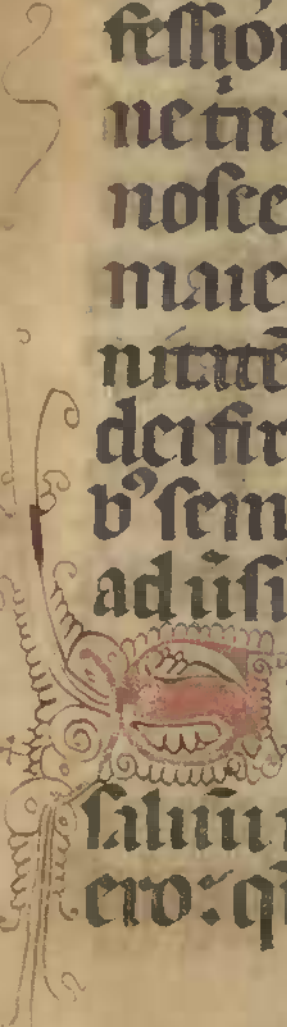 fessio
ne tri
nosce
maie
nitatē
dei fir
b⁹ sem
ad ūsi
saluū
ero: qi